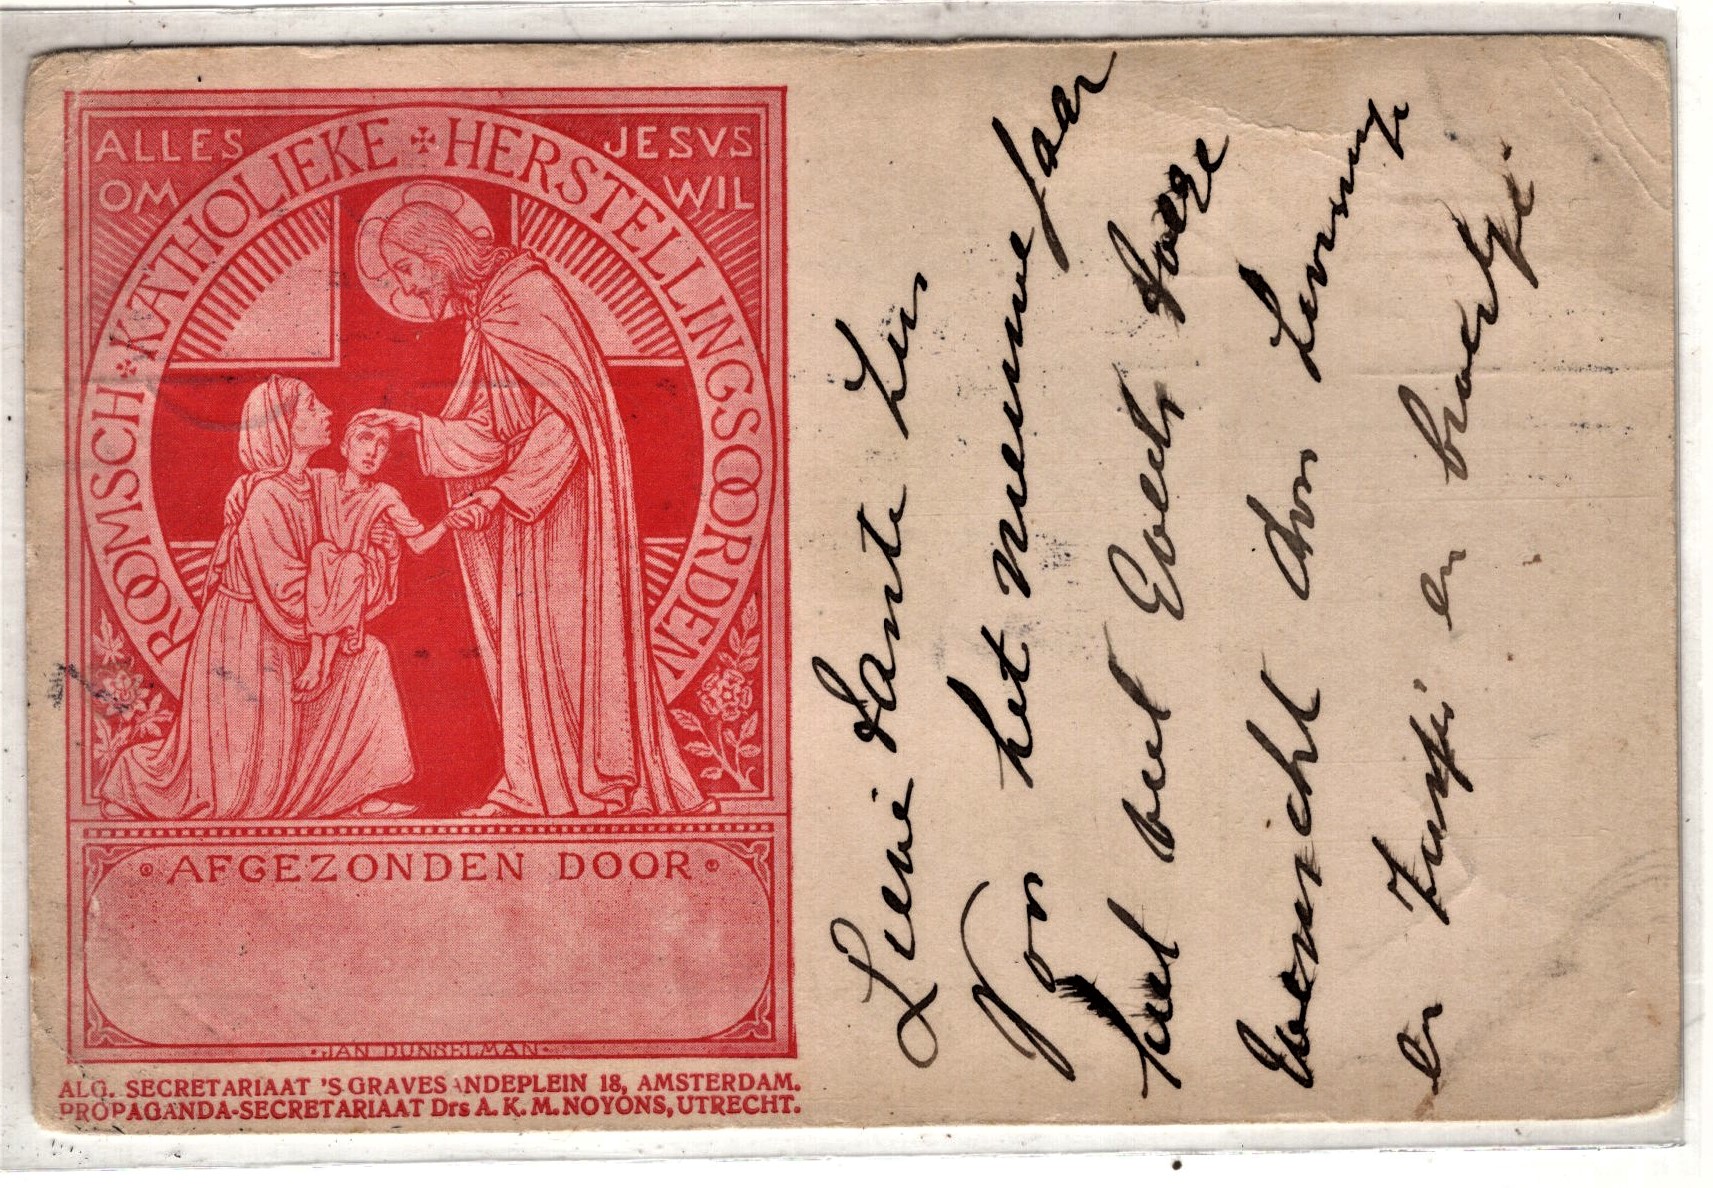 ALLES JESVS
OM WIL
ROOMSCH KATHOLIEKE HERSTELLINGSOORDEN
AFGEZONDEN DOOR
JAN DUNSELMAN
ALG. SECRETARIAAT 'S GRAVESANDEPLEIN 18, AMSTERDAM.
PROPAGANDA-SECRETARIAAT Drs A. K. M. NOYONS, UTRECHT.
Lieve Tante
Voor het nieuwe Jaar
heel veel
door
en Zusje en broertje